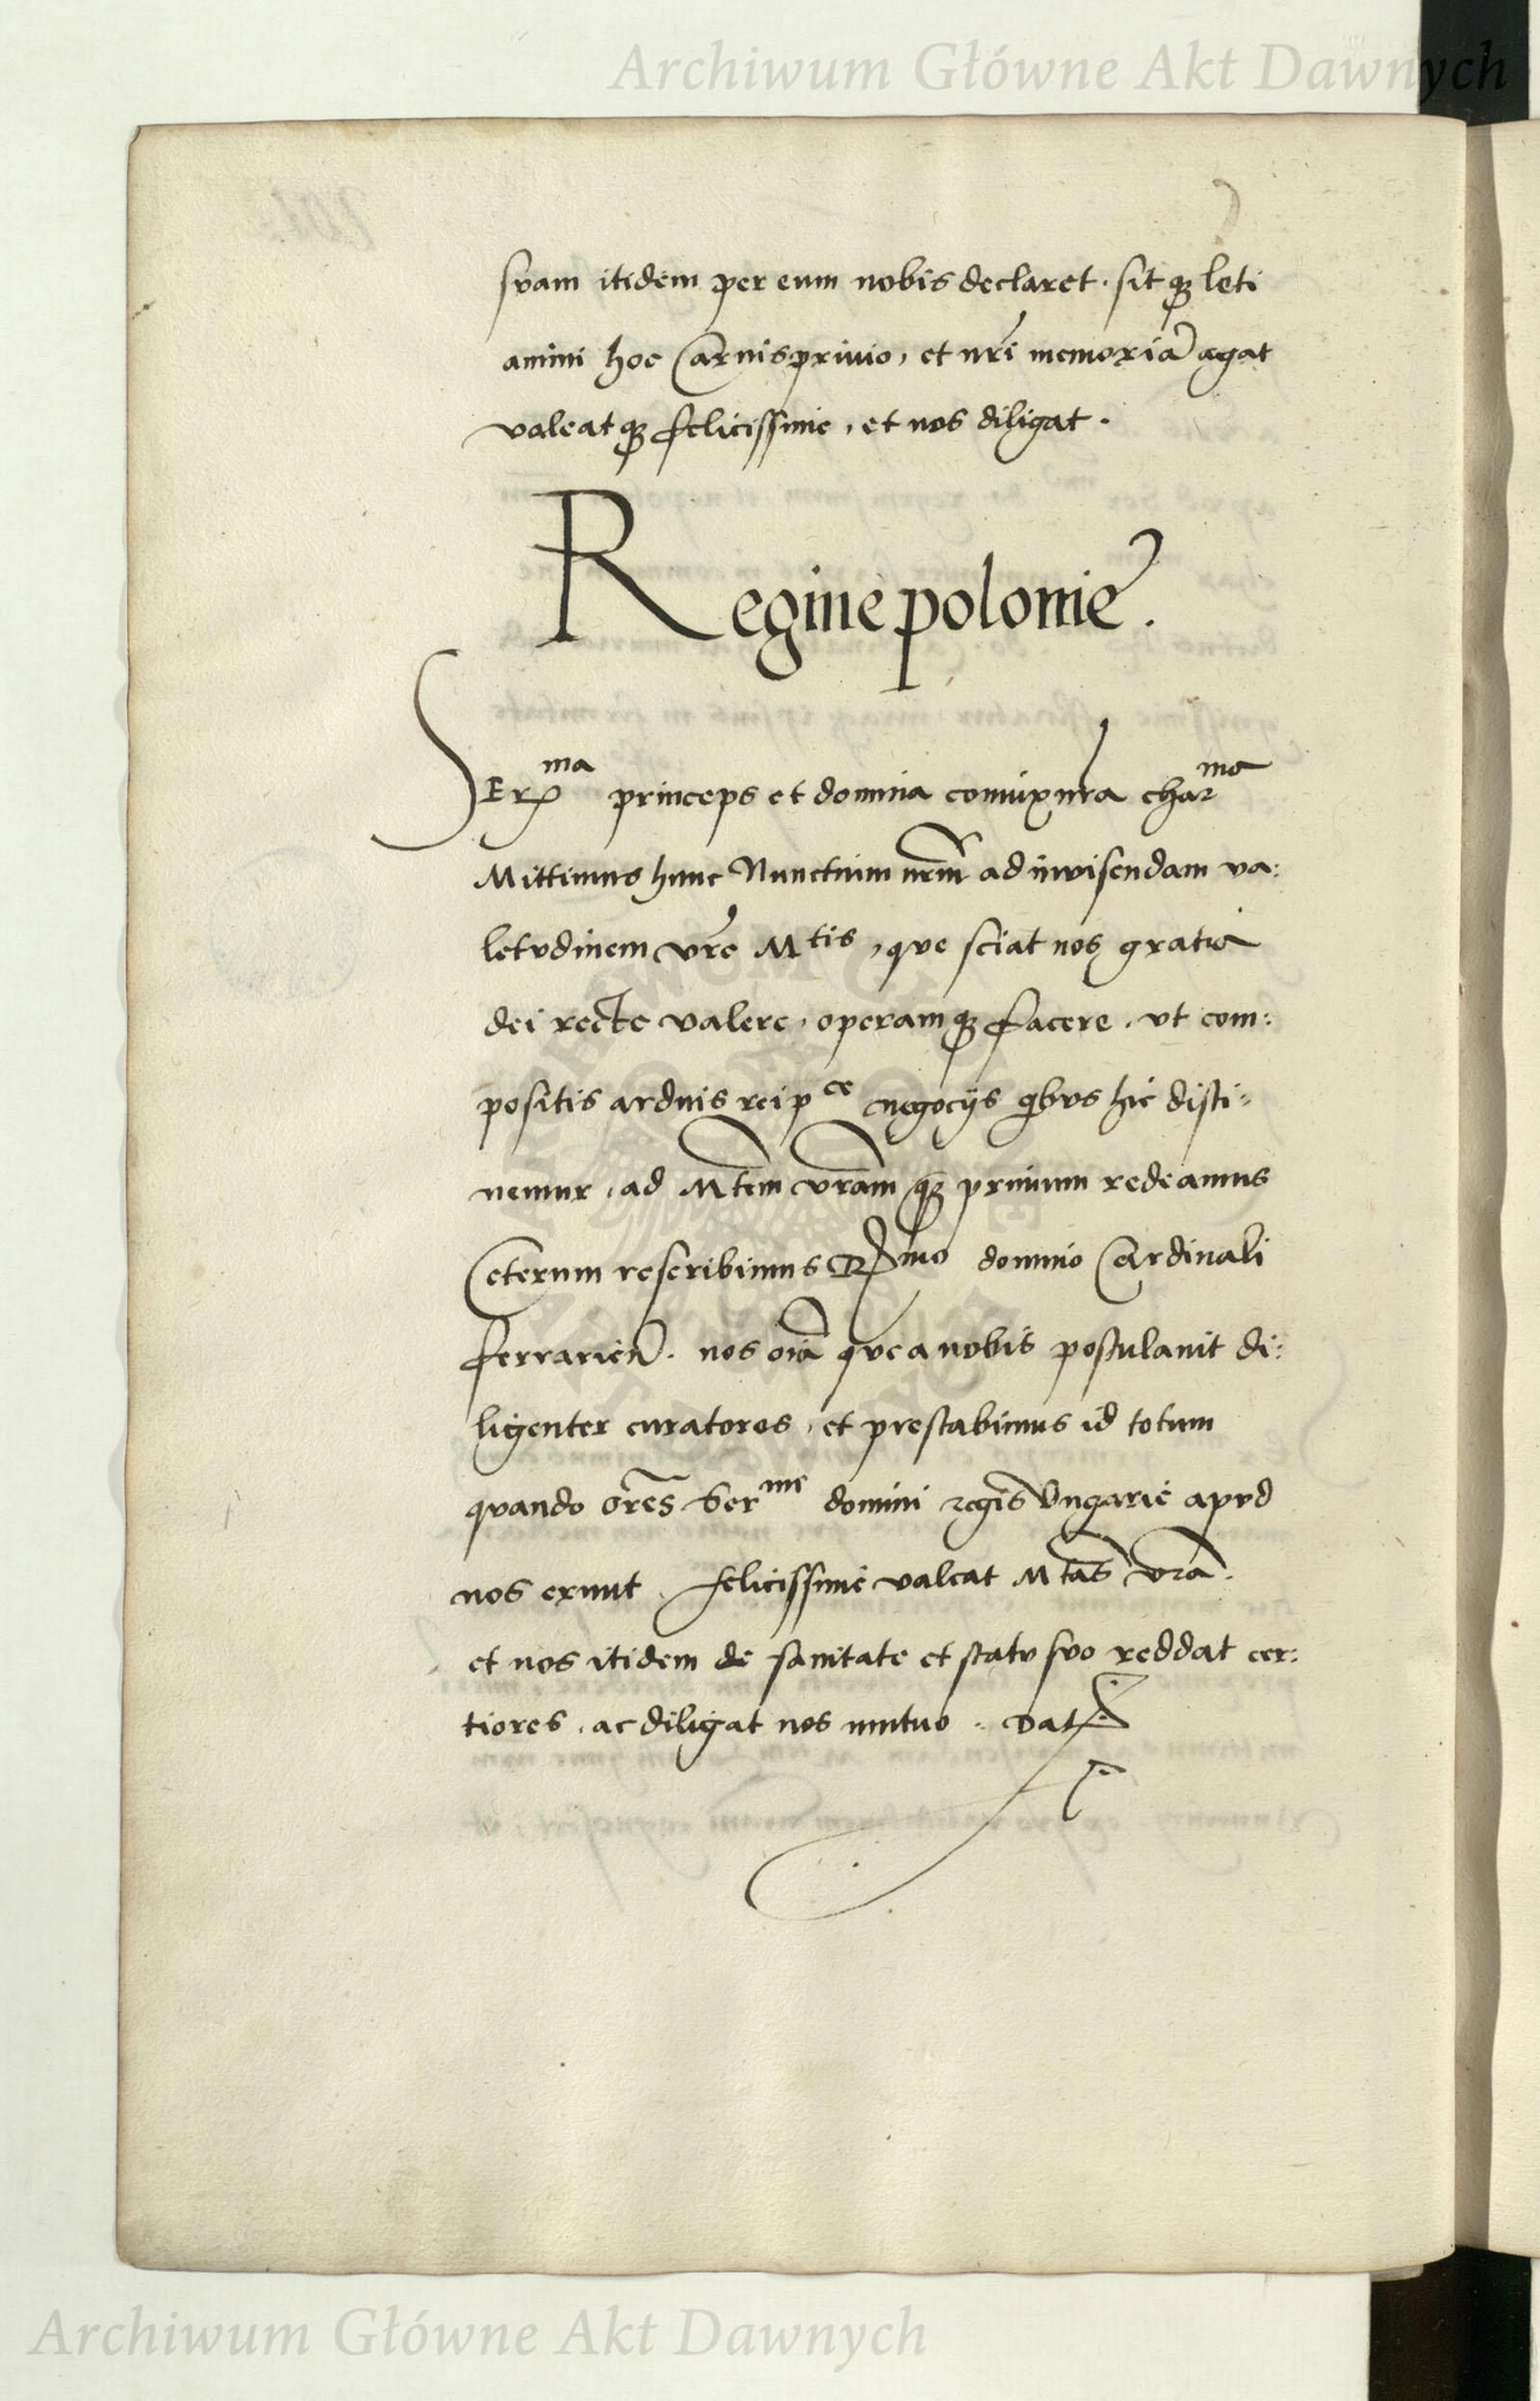 Archiwum Główne Akt Dawnych
svam itidem per eum nobis declaret. sitqꝫ leti
animi hoc Carnisprivio, et nr̃i memoriã agat
valeatqꝫ felicissime, et nos diligat.
Regine polonie.
SEr^ma princeps et domina coniũx nr̃a char^ma
Mittimus hunc Nunctium nr̃m ad invisendam va:
letvdinem vr̃e M^tis, qve sciat nos gratia
dei recte valere, operamqꝫ facere, vt com:
positis arduis reip^ce negocijs qbvs hic disti:
nemur, ad M^tem vr̃am qꝫ primum redeamus
Ceterum rescribimus R^mo domino Cardinali
ferrarieñ. nos oĩa qve a nobis postulavit di:
ligenter curatores, et prestabimus id totum
qvando or̃es Ser^mi domini regis Vngarie apvd
nos erunt. felicissime valeat M^tas vr̃a.
et nos itidem de sanitate et statv svo reddat cer:
tiores, ac diligat nos mutuo. Dat
Archiwum Główne Akt Dawnych